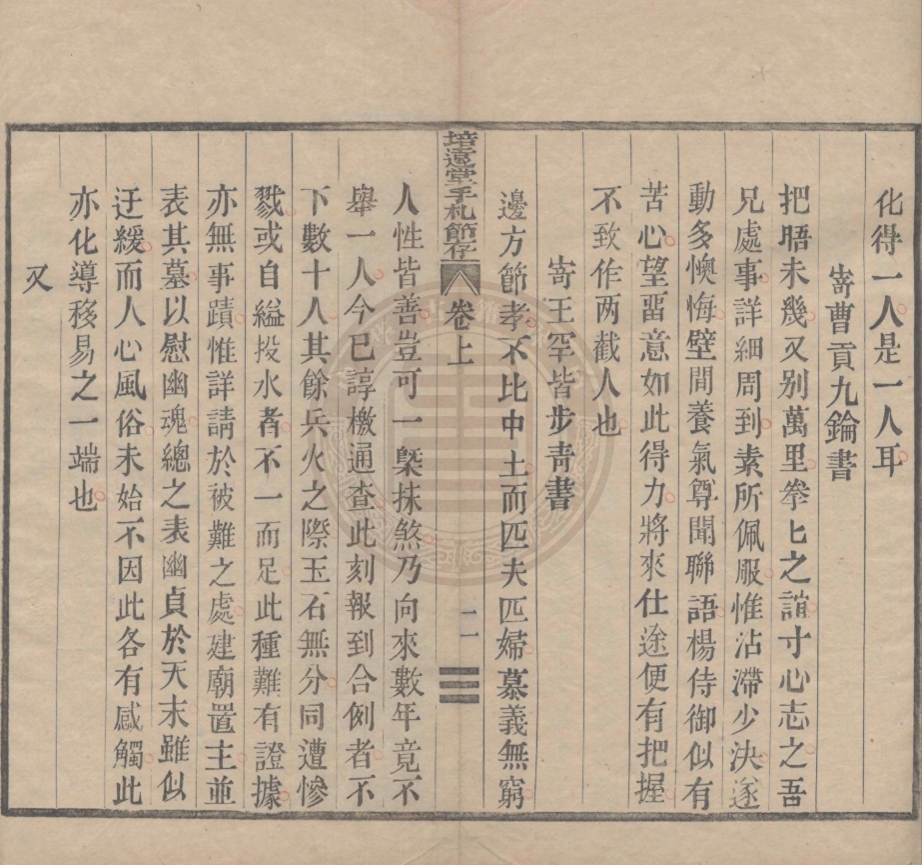 化得一人是一人耳
寄曹貢九錀書
把晤未幾又别萬里拳匕之誼寸心志之吾
兄處事詳細周到素所佩服惟沾滯少决遂
動多懊悔壁間養氣尊聞聯語楊侍御似有
苦心望畱意如此得力將來仕途便有把握
不致作两截人也
寄王罕皆步青書
邊方節孝不比中土而匹夫匹婦慕義無窮
培遠堂手札節存
卷上
二
人性皆善豈可一槩抹煞乃向來數年竟不
舉一人今已諄檄通查此刻報到合例者不
下數十人其餘兵火之際玉石無分同遭慘
戮或自縊投水者不一而足此種難有證據
亦無事蹟惟詳請於被難之處建廟置主並
表其墓以慰幽魂總之表幽貞於天末雖似
迂緩而人心風俗未始不因此各有感觸此
亦化導移易之一端也
又